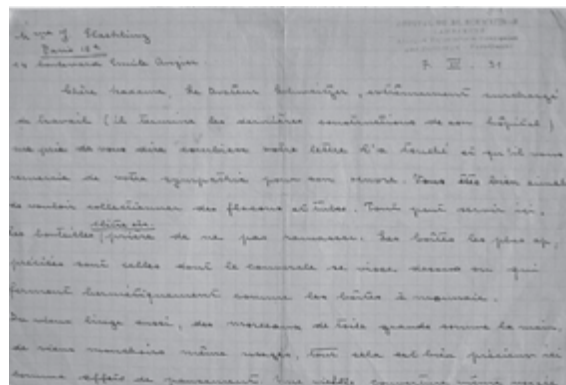 Mme J.
Paris 16e
boulevard Emile Augier
7. XII. 31
Chère Madame, Le Docteur Schweitzer, extrêmement surchargé
de travail (il termine les dernières constructions de son hôpital)
me prie de vous dire combien votre lettre l'a touché et qu'il vous
remercie de votre sympathie pour son oeuvre. Vous êtes bien aimable
de vouloir collectionner des flacons et tubes. Tout peut servir ici,
les bouteilles, prière de ne pas ramasser. Les boîtes les plus ap-
préciées sont celles dont le couvercle se visse dessus ou qui
ferment hermétiquement comme les boîtes à
Du vieux linge aussi, des morceaux de toile grands comme la main,
de vieux mouchoirs même usagés, tout cela est bien précieux ici
comme effets de pansement. Une vieille couverture même